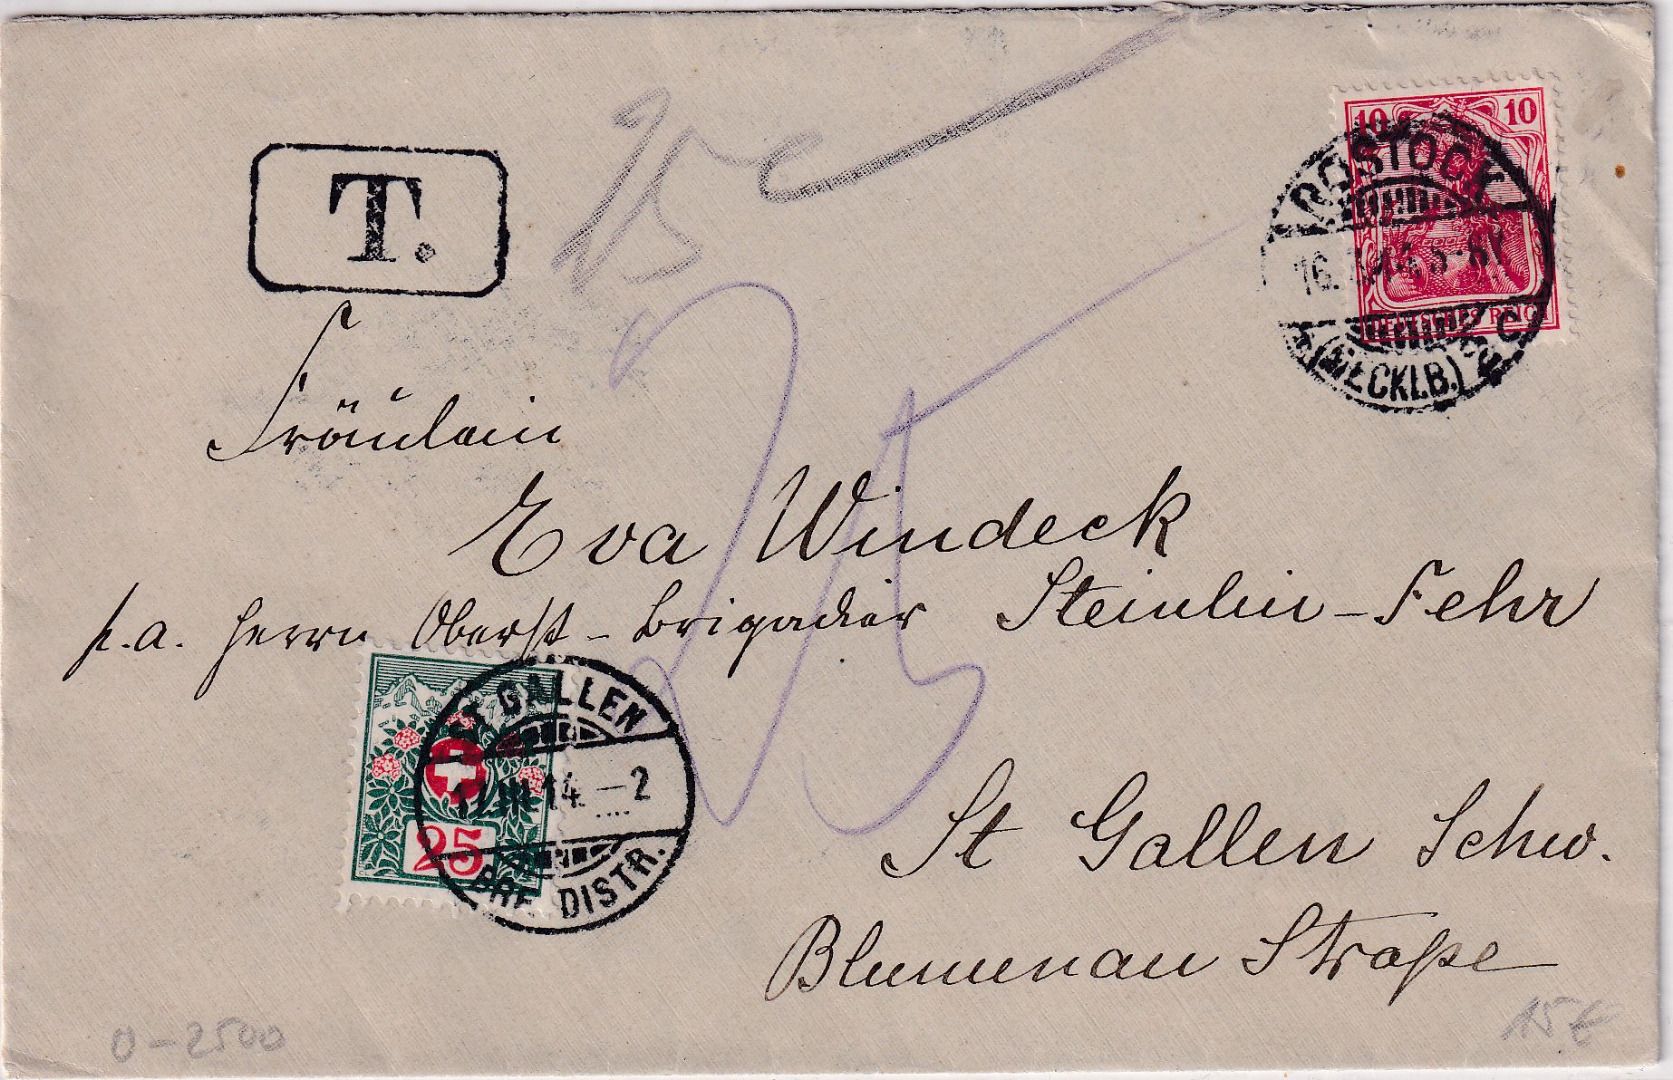 T.
25 c
10 10
DEUTSCHES REICH
ROSTOCK
16. 14. 5-6N
(MECKLB.)
25
Fräulein
Eva Windeck
p. a. Herrn Oberst-Brigadier Steinlin-Fehr
25
ST. GALLEN
17.III.14. –2
BRF. DISTR.
St Gallen Schw.
Blumenau Straße
0-2500
15€